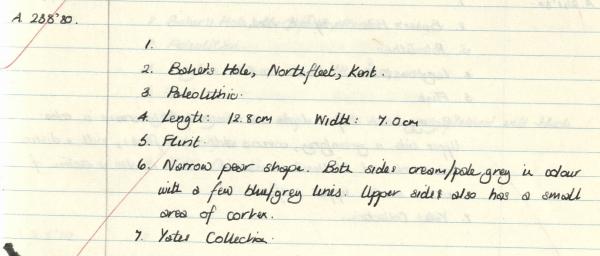 A. 238'80.
1.
2. Baker's Hole, Northfleet, Kent.
3. Paleolithic.
4. Length: 12.8cm Width: 7.0cm
5. Flint.
6. Narrow pear shape. Both sides cream/pale grey in colour
with a few blue/grey lines. Upper side also has a small
area of cortex.
7. Yates Collection.